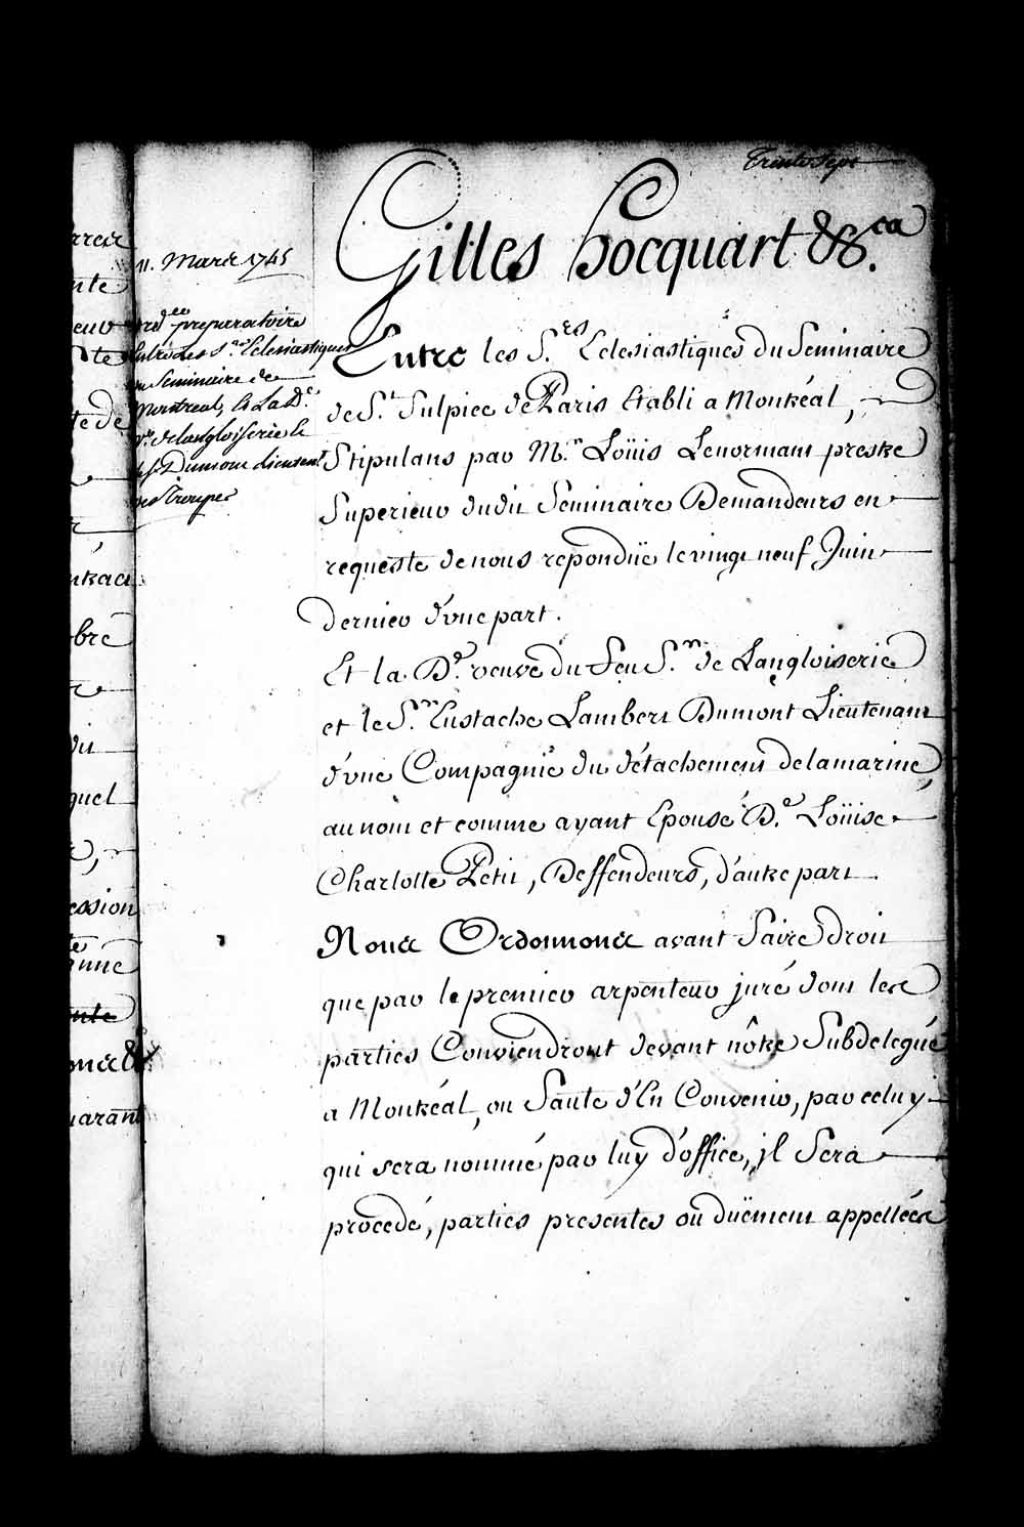 Trente Sept
Gilles hocquart &c.ca
11. Mars 1745
ord.ce preparatoire
Entre Les s.rs Eclesiastiques
du Seminaire de
Montreal, et La d.e
v.e de langloiserie et
le s.r Dumont lieutenant
des Troupes
Entre les S.rs Eclesiastiques du Seminaire
de S.t Sulpice de Paris Etabli a Montréal,
Stipulans par M.re Loüis Lenormant prestre
Superieur dudit Seminaire Demandeurs en
requeste de nous repondüe le vingt neuf Juin
dernier d'une part.
Et la D.e veuve du feu S.r de Langloiserie
et le S.r Eustache Lambert Dumont Lieutenant
d'une Compagnie du détachement de la marine,
au nom et comme ayant Epousé D.e Loüise
Charlotte Petit, Deffendeurs, d'autre part
Nous Ordonnons avant faire droit
que par le premier arpenteur juré dont les
parties Conviendront devant nôtre Subdelegué
a Montréal, ou faute d'En Convenir, par celuy
qui sera nommé par luy d'office, jl Sera
procedé, parties presentes ou düement appellées
nte
te
te de
bre
du
quel
ession
onne
nte
ons &
uarante